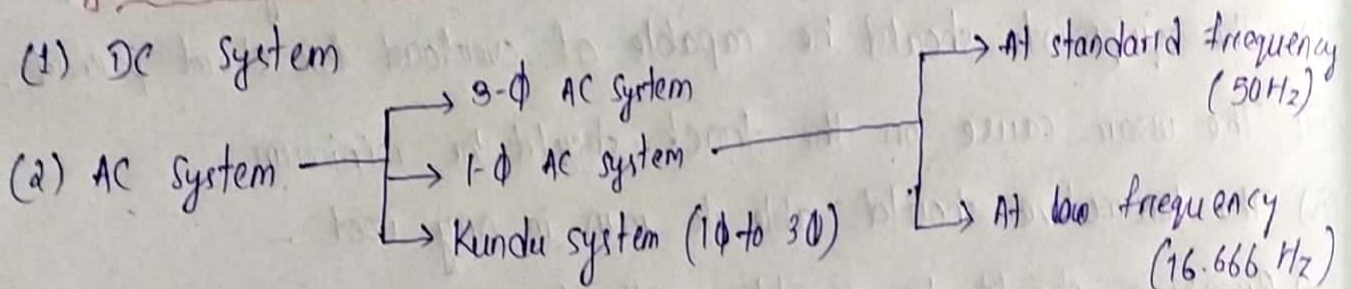 (1) DC System
(2) AC System
→ 3-Φ AC System
→ 1-Φ AC system
→ Kundu system (1Φ to 3Φ)
→ At standard frequency
(50Hz)
→ At low frequency
(16.666 Hz)